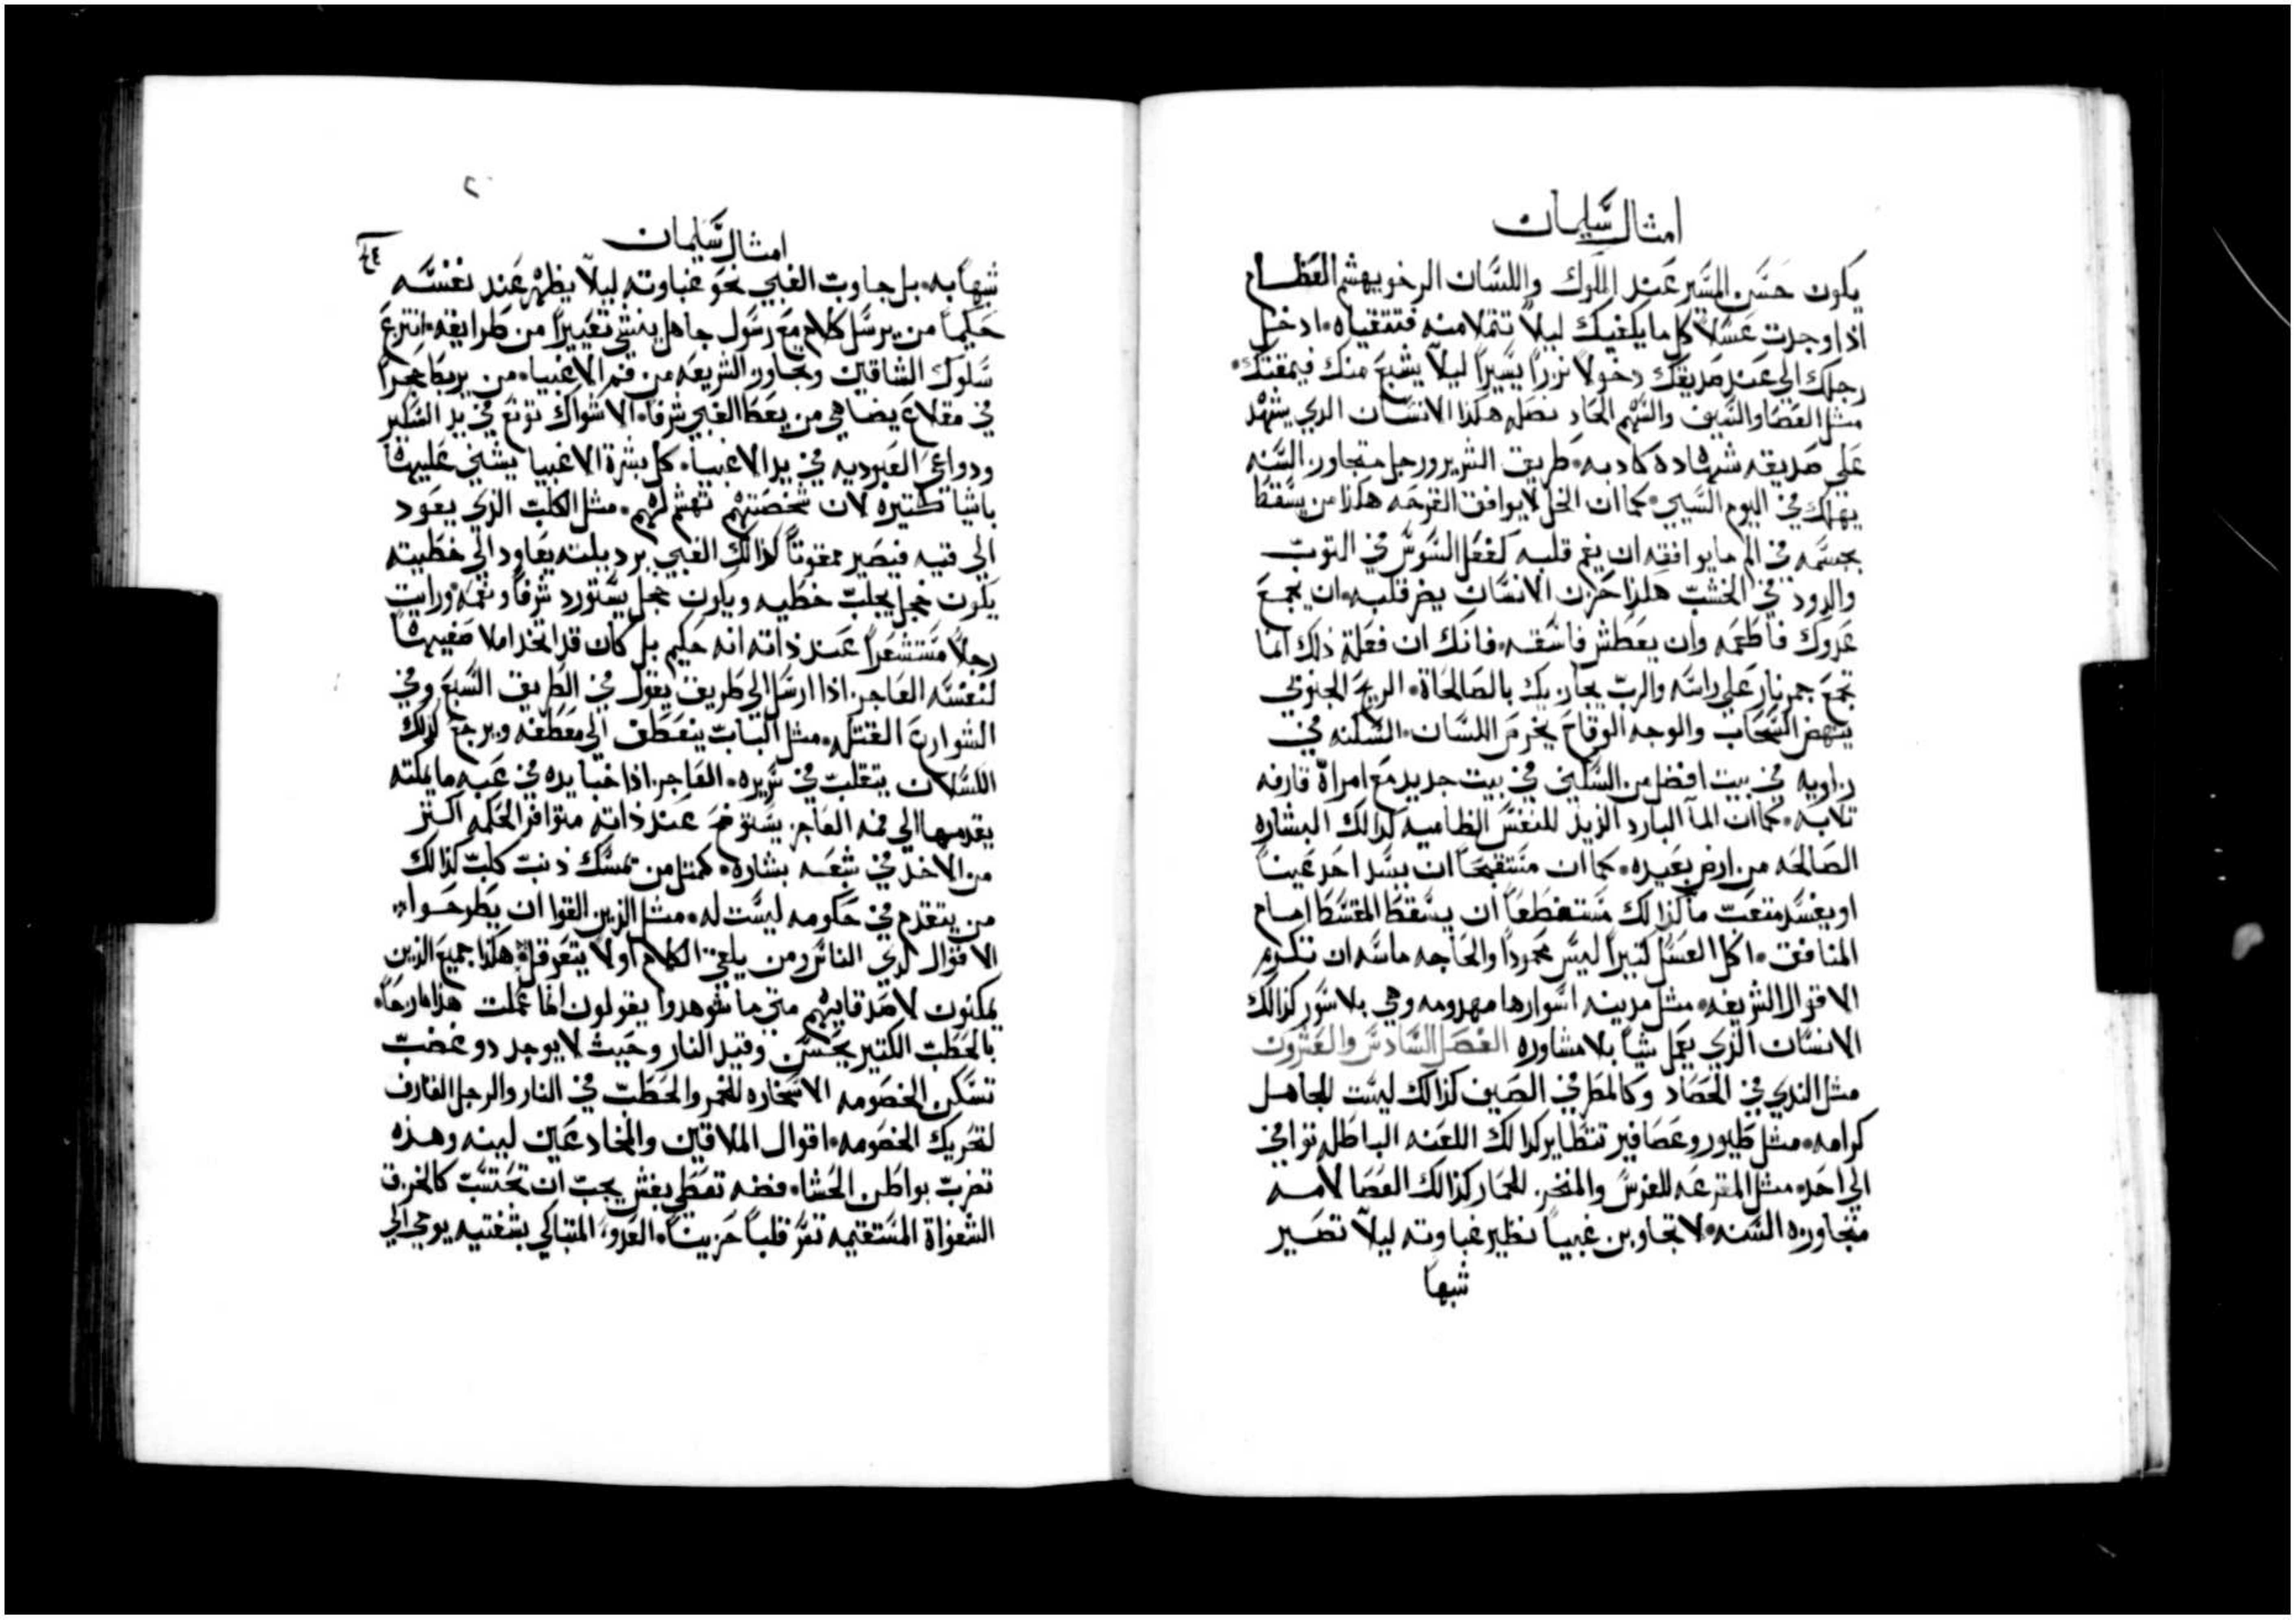 امثال سليمان
يكون حسن المسير عند الملوك واللسان الرخو يهشم العظام
اذا وجدت عسلا كل ما يكفيك ليلا تتملا منه فتتقياه ادخل
رجلك الي عند صديقك دخولا نزرا يسيرا ليلا يشبع منك فيمقتك
مثل العصا والسيف والسهم الحاد نصله هكذا الانسان الدي يشهد
علي صديقه شهاده كادبه طريق الشرير ورجل متجاوز السنه
يهلك في اليوم السيي كما ان الخل لا يوافق القرحه هكذا من يسقط
بجسمه في الم ما يوافقه ان يغم قلبه كفعل السوس في التوب
والدود في الخشب هكذا حزن الانسان يضر قلبه ان يجع
عدوك فاطعمه وان يعطش فاسقه فانك ان فعلة ذلك انما
تجمع جمر نار علي راسه والرب يجازيك بالصالحاة الريح الجنوبي
ينهض السحاب والوجه الوقاح يخرس اللسان السكنه في
زاويه في بيت افضل من السكني في بيت جديد مع امراة قارفه
تلابه كما ان المآ البارد الزيز للنفس الظاميه كدالك البشاره
الصالحه من ارض بعيده كما ان مستقبحا ان يسد احد عينا
او يفسد متعب مآ كذالك مستفظعا ان يسقط المقسط امام
المنافق اكل العسل كتيرا ليس محمودا والحاجه ماسه ان تكرم
الاقوال الشريفه مثل مدينه اسوارها مهدومه وهي بلا سور كذالك
الانسان الذي يعمل شيا بلا مشاوره الفصل السادس والعشرون
مثل الندي في الحصاد وكالمطر في الصيف كذالك ليست للجاهل
كرامه مثل طيور وعصافير تتطاير كدالك اللعنه الباطله توافي
الي احد مثل المقرعه للفرس والمنخز للحمار كذالك العصا لامه
متجاوزه السنه لا تجاوبن غبيا نظير غباوته ليلا تصير
شبها
امثال سليمان
شبها به بل جاوب الغبي نحو غباوته ليلا يظهر عند نفسه
حكيما من يرسل كلام مع رسول جاهل ينشي تعييرا من طرايقه انتزع
سلوك الشاقين وتجاوز الشريعه من فم الاغبيا من يربط حجرا
في مقلاع يضاهي من يعط الغبي شرفا الاشواك توتع في يد السكير
ودواعي العبوديه في يد الاغبيا كل بشرة الاغبيا يشني عليها
باشيا كتيره لان شخصتهم تهشم لهم مثل الكلب الذي يعود
الي قتيه فيصير ممقوتا كذالك الغبي برديلته يعاود الي خطيته
يكون خجل يجلب خطيه ويكون خجل يستورد شرفا ونعمه ورايت
رجلا مستشعرا عند ذاته انه حكيم بل كان قد اتخذ املا صفيها
لنفسه العاجز اذا ارسل الي طريق يقول في الطريق السبع وفي
الشوارع القتله مثل الباب ينعطف الي معطفه ويرجع كذلك
الكسلان يتقلب في سريره الفاجر اذا خبا يده في عبه ما يمكنه
يقدمها الي فمه العاجز يستوضح عند ذاته متوافر الحكمه اكتر
من الاخذ في شبعه بشاره كمتل من تمسك ذنب كلب كذالك
من يتقدم في حكومه ليست له مثل الذين القوا ان يطرحوا
الاقوال لدي الناس ومن يلقي الكلام اولا يتعرقل هكذا جميع الذين
يمكنون لاصدقايهم متي ما شوهدوا يقولون انما عملت هذا مازحا
بالحطب الكتير يحسن وقيد النار وحيث لا يوجد دو غضب
تسكن الخصومه الاسخاره للجمر والحطب في النار والرجل القارف
لتحريك الخصومه اقوال الملاقين والمخادعين لينه وهذه
تضرب بواطن الحشا فضه تعطي بغش يجب ان تحتسب كالخزف
الشفواة المستقيمه تسر قلبا حزينا العدو المتباكي بشفتيه يوحي الي